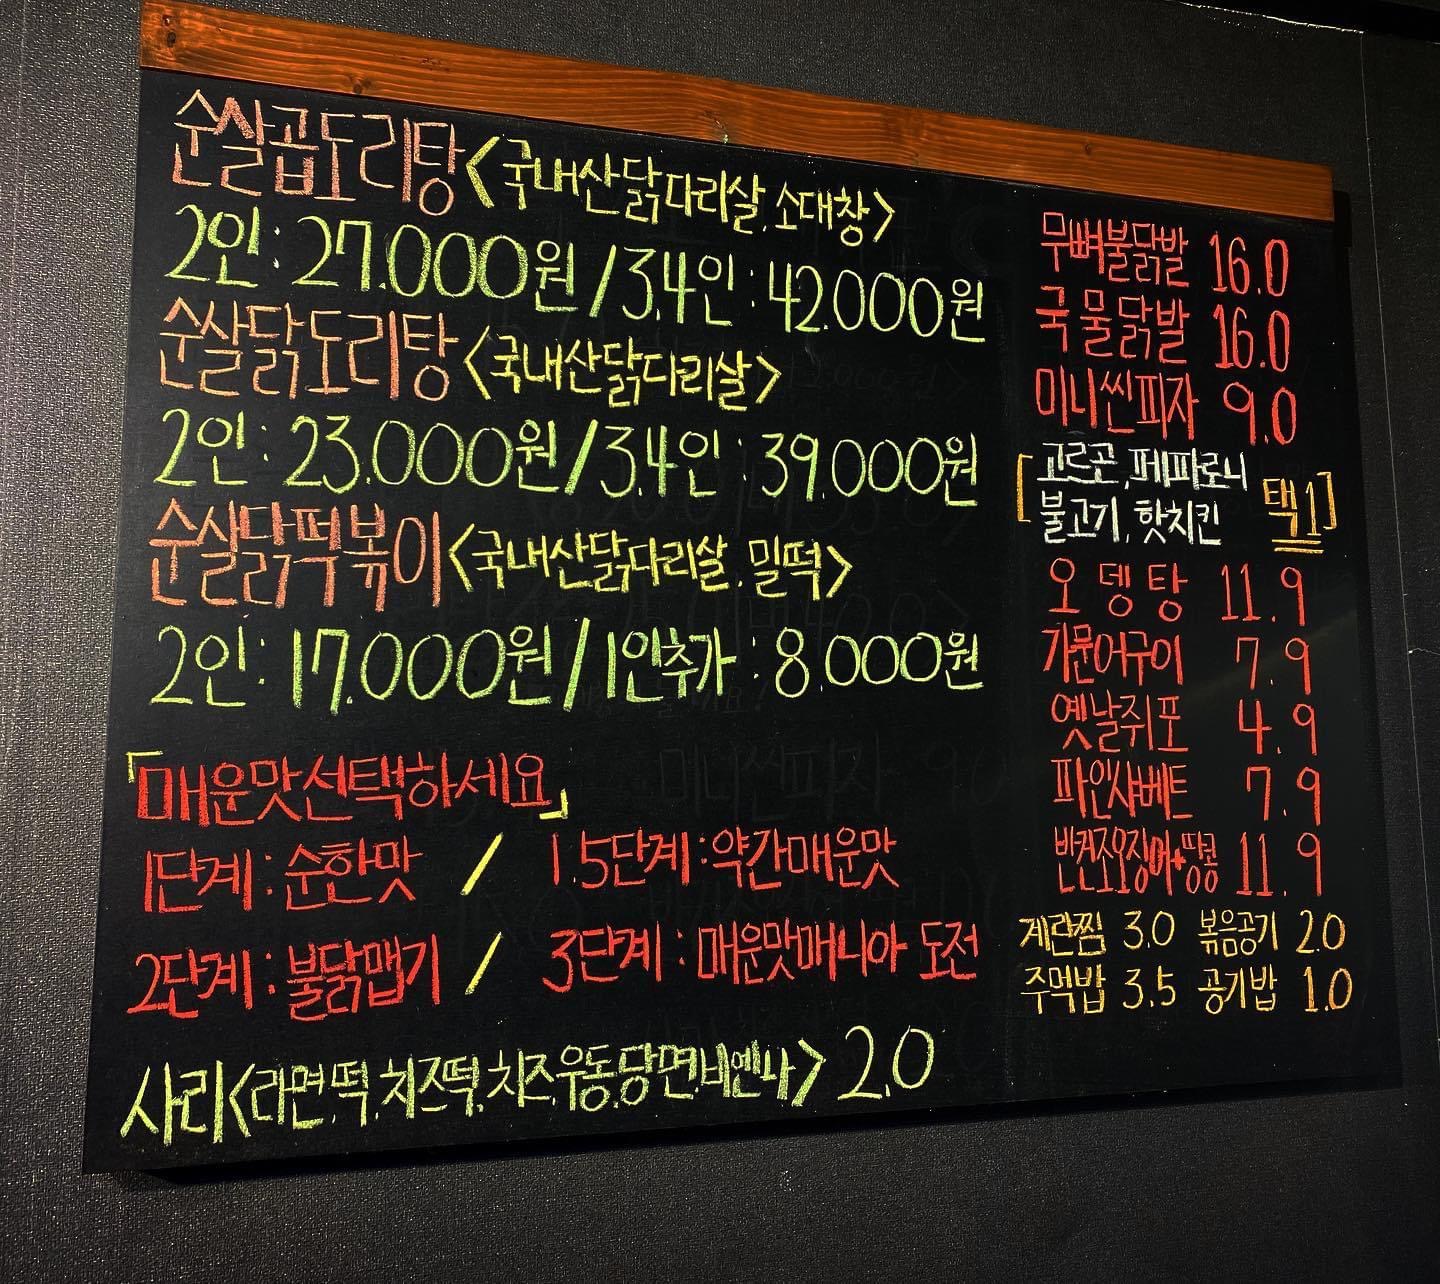 순살곱도리탕<국내산닭다리살,소대창>
2인:27.000원/3,4인:42.000원
순살닭도리탕<국내산닭다리살>
2인:23.000원/3,4인:39.000원
순살닭떡볶이<국내산닭다리살,밀떡>
2인:17.000원/1인추가:8.000원
「매운맛선택하세요」
1단계:순한맛 / 1.5단계:약간매운맛
2단계:불닭맵기 / 3단계:매운맛매니아 도전
사리<라면,떡,치즈떡,치즈,우동,당면,비엔나> 2.0
무뼈불닭발 16.0
국물닭발 16.0
미니씬피자 9.0
[고르곤,페파로니
불고기,핫치킨 택1]
오뎅탕 11.9
가문어구이 7.9
옛날쥐포 4.9
파인샤베트 7.9
반건조오징어+땅콩 11.9
계란찜 3.0 볶음공기 2.0
주먹밥 3.5 공기밥 1.0